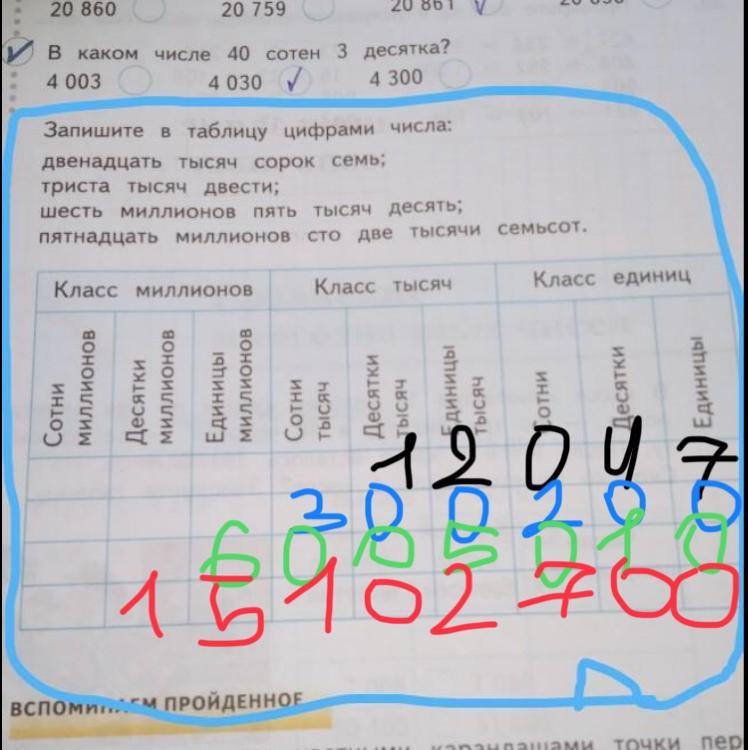 20 860 20 759 20 861
В каком числе 40 сотен 3 десятка?
4 003 4 030 4 300
Запишите в таблицу цифрами числа:
двенадцать тысяч сорок семь;
триста тысяч двести;
шесть миллионов пять тысяч десять;
пятнадцать миллионов сто две тысячи семьсот.
Класс миллионов Класс тысяч Класс единиц
Сотни миллионов Десятки миллионов Единицы миллионов Сотни тысяч Десятки тысяч Единицы тысяч Сотни Десятки Единицы
1 2 0 4 7
3 0 0 2 0 0
6 0 0 5 0 1 0
1 5 1 0 2 7 0 0
ВСПОМИНАЕМ ПРОЙДЕННОЕ
карандашами точки